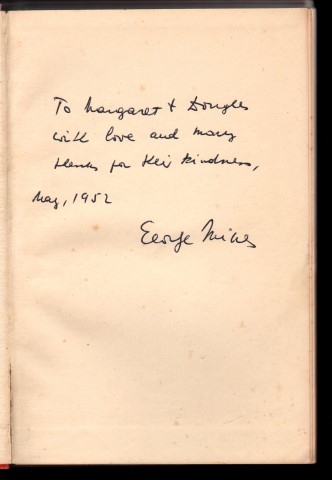 To Margaret & Douglas
with love and many
thanks for their kindness,
May, 1952
George Mikes